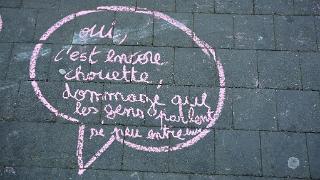 oui,
c'est encore
chouette,
dommage que
les gens parlent
se peu entre eux